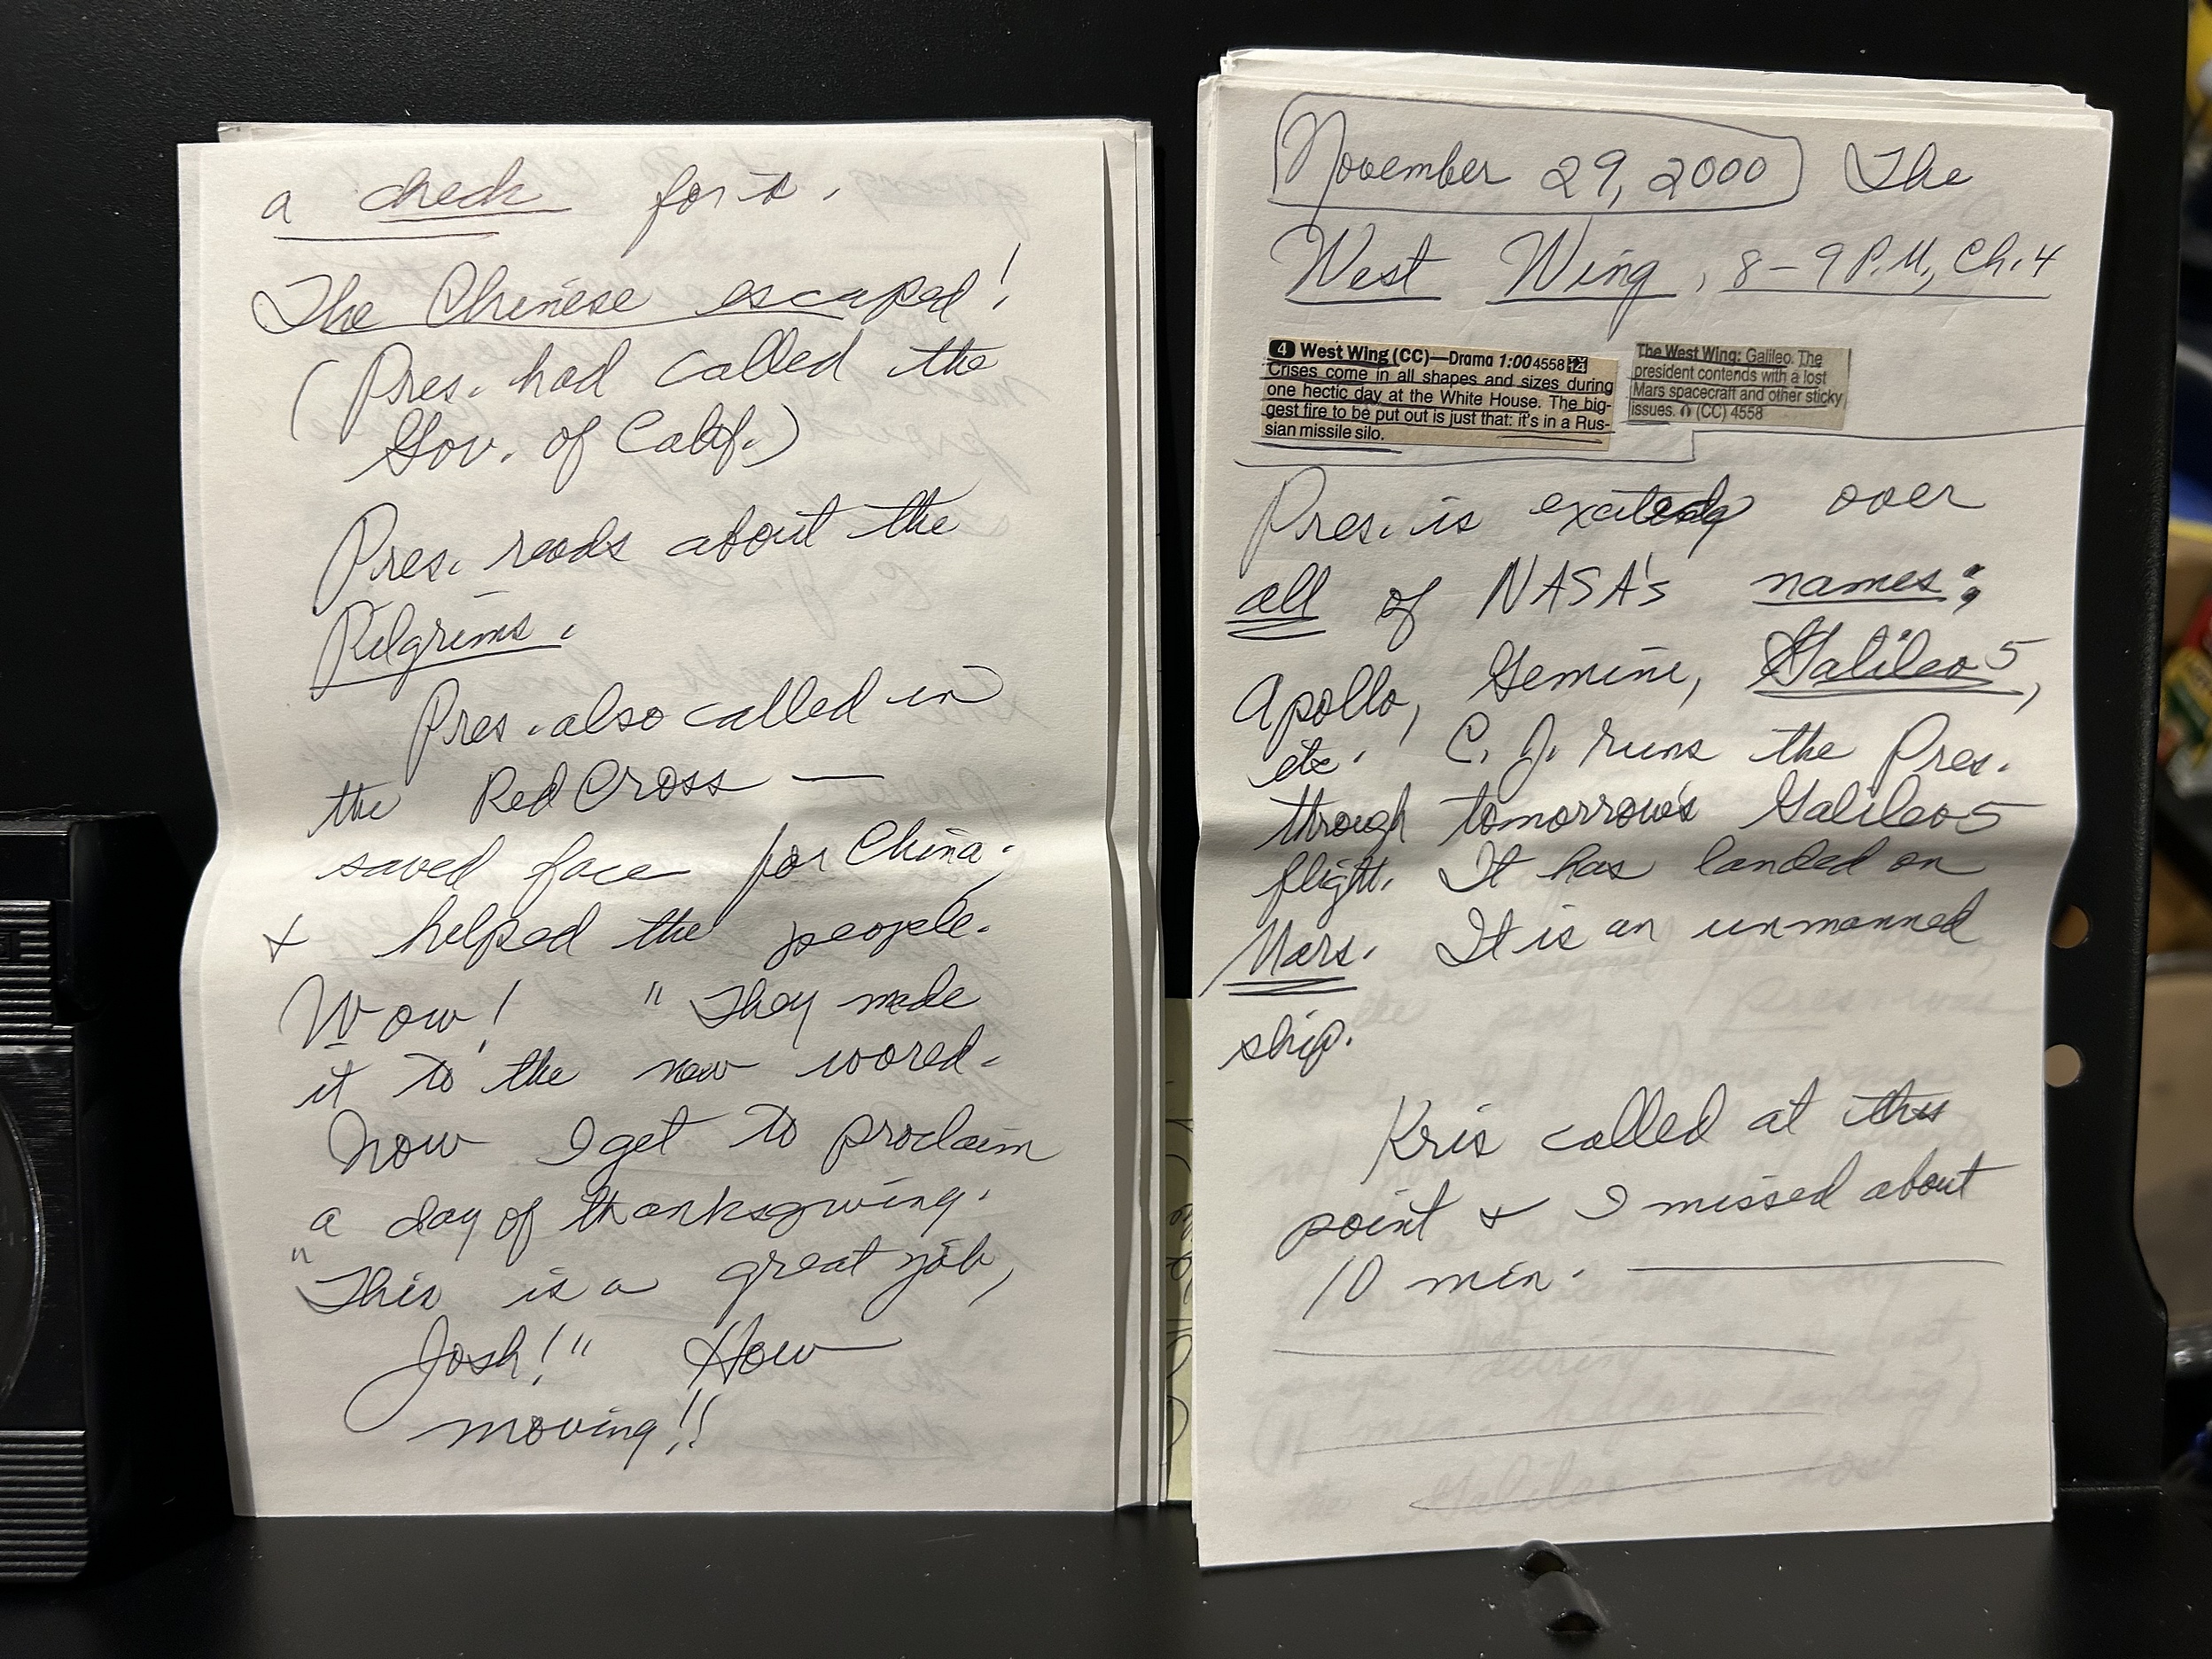 a check for it.
The Chinese escaped!
(Pres. had called the
Gov. of Calif.)
Pres. reads about the
Pilgrims.
Pres. also called in
the Red Cross —
saved face for China.
& helped the people.
Wow! " They made
it to the new world.
Now I get to proclaim
a day of thanksgiving.
"This is a great job,
Josh!" How
moving!!
November 29, 2000 The
West Wing, 8-9 P.M., Ch. 4
4 West Wing (CC)—Drama 1:00 4558 14
Crises come in all shapes and sizes during
one hectic day at the White House. The big-
gest fire to be put out is just that: it's in a Rus-
sian missile silo.
The West Wing: Galileo. The
president contends with a lost
Mars spacecraft and other sticky
issues. (CC) 4558
Pres. is excited over
all of NASA's names:
Apollo, Gemini, Galileo 5,
etc. C. J. runs the Pres.
through tomorrow's Galileo 5
flight. It has landed on
Mars. It is an unmanned
ship.
Kris called at this
point & I missed about
10 min.